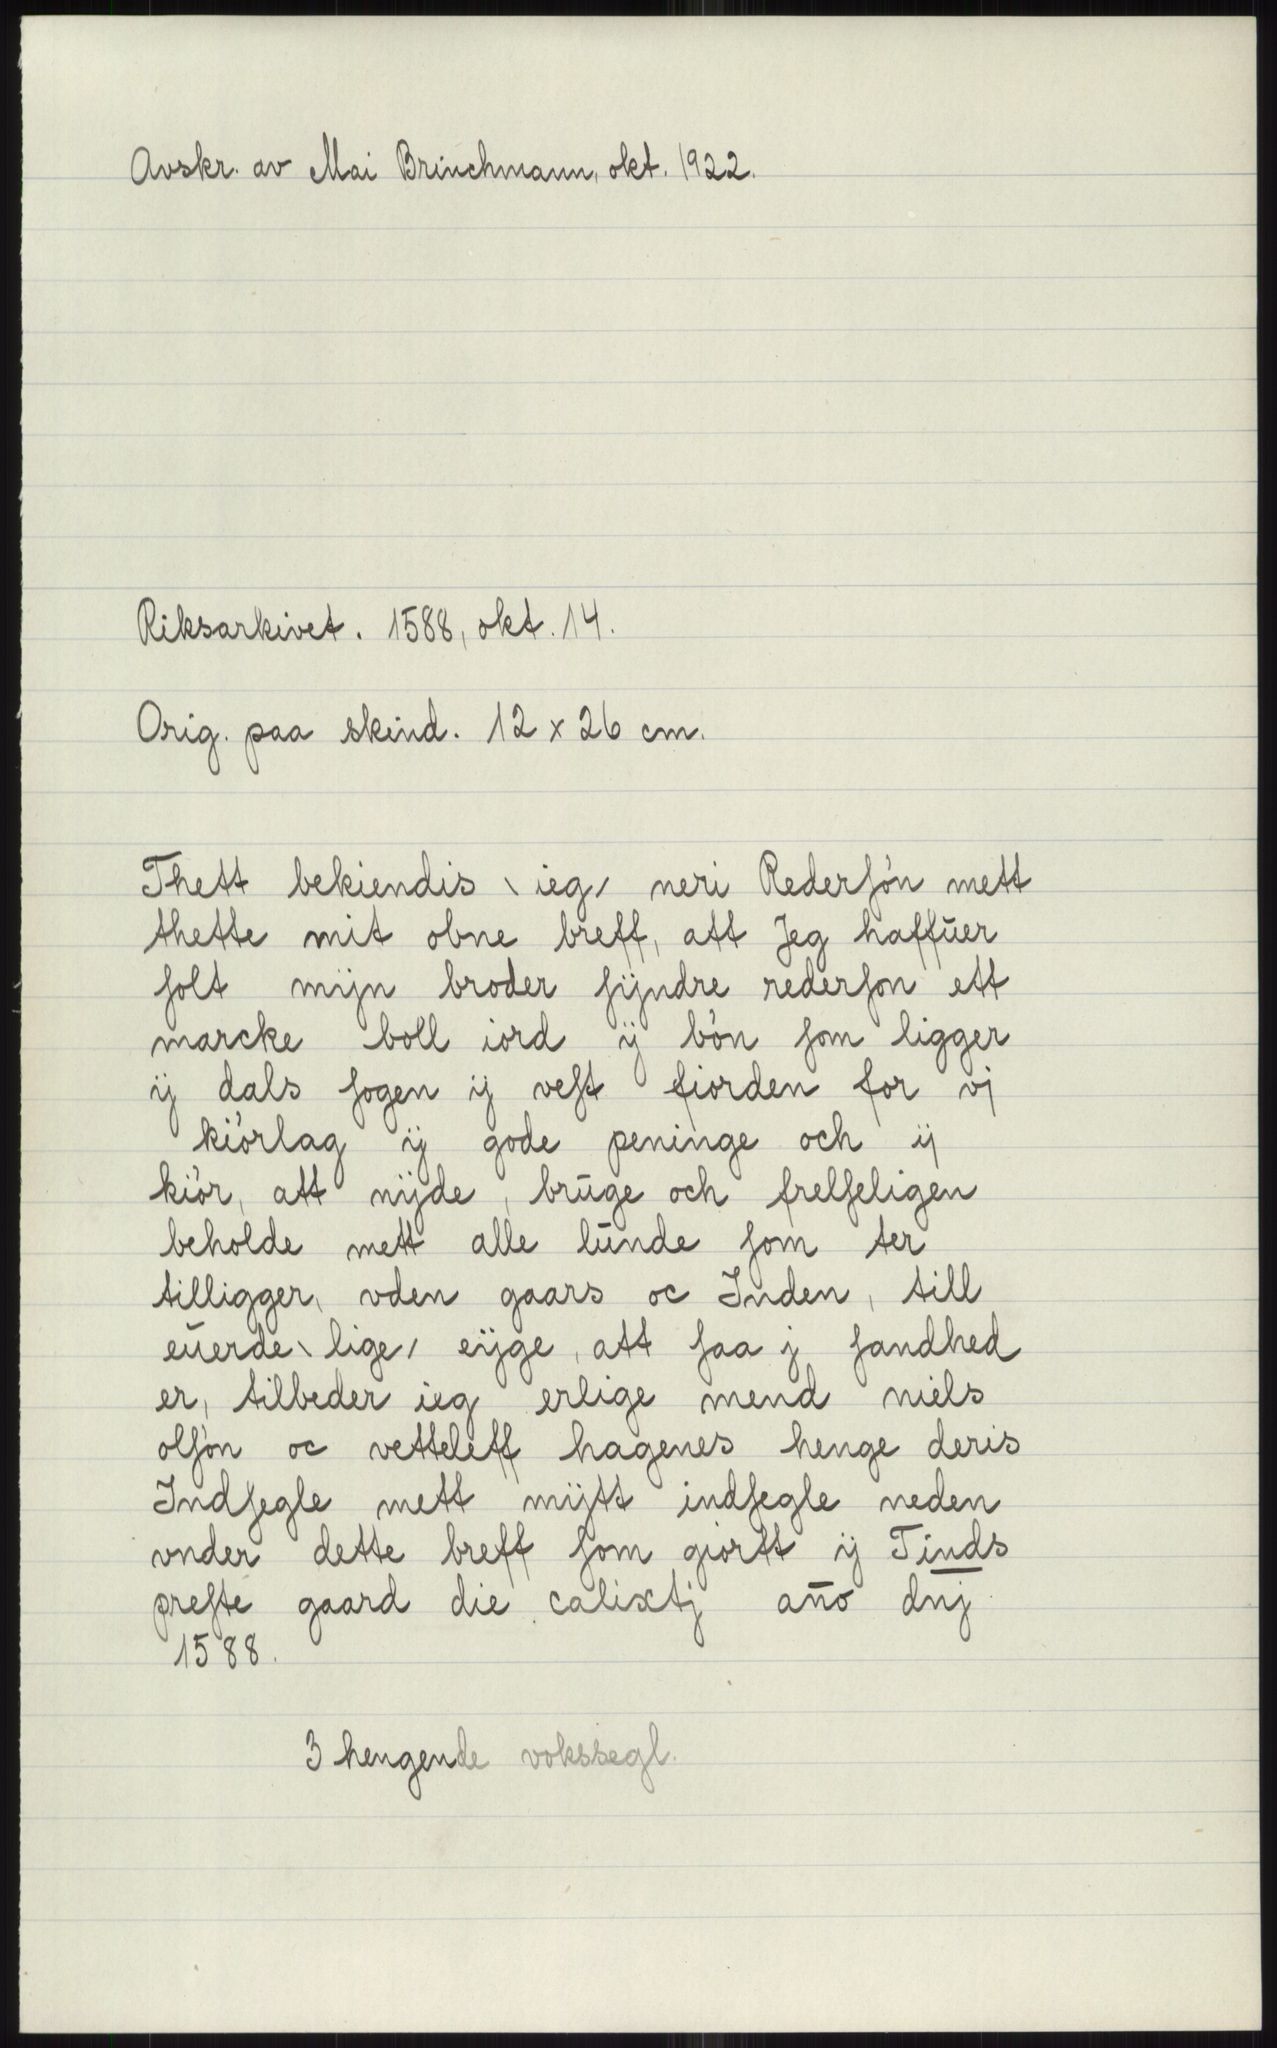 Avskr. av Mai Brinchmann, okt. 1922.
Riksarkivet. 1588, okt. 14.
Orig. paa skind. 12 x 26 cm.
Thett bekiendis \ ieg / neri Rederſón mett
thette mit obne breff, att Jeg haffūer
ſolt mijn broder ſijndre rederſon ett
marcke boll iord ÿ bón ſom ligger
ÿ dals ſogen ÿ veſt fiorden for vj
kiórlag ÿ gode peninge och ÿ
kiór, att nÿde, brūge och frelſeligen
beholde mett alle lūnde ſom ter
tilligger, vden gaars oc Inden, till
eūerde \ lige / eÿge, att ſaa j ſandhed
er, tilbeder ieg erlige mend niels
olſón oc vetteleff hagenes henge deris
Indſegle mett mÿtt indſegle neden
vnder dette breff ſom giortt ÿ Tinds
preſte gaard die calixtj an̄o dn̄j
1588.
3 hengende vokssegl.